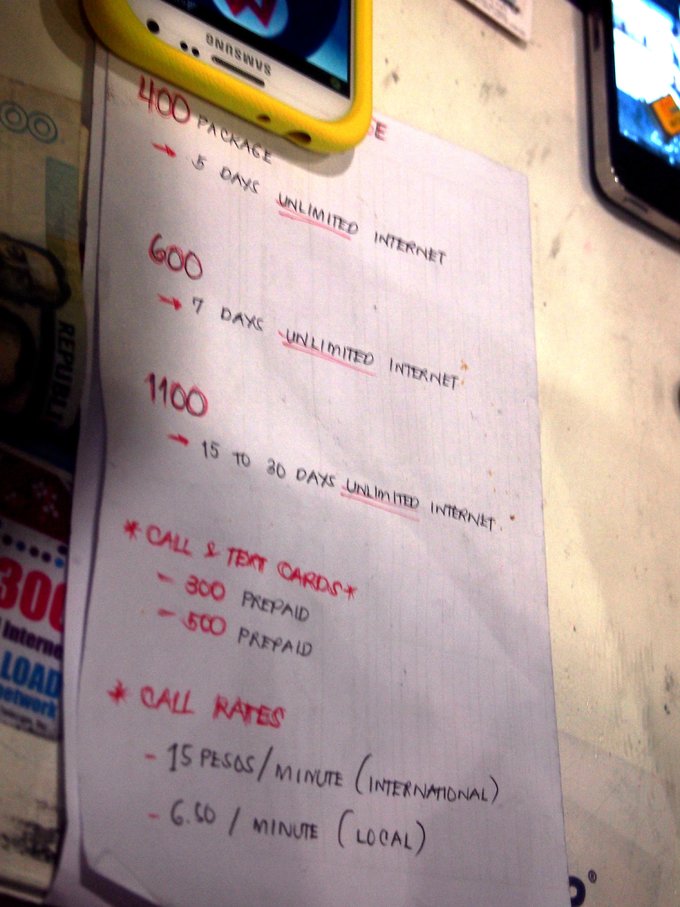 SAMSUNG
E
400 PACKAGE
→ 5 DAYS UNLIMITED INTERNET
600
→ 7 DAYS UNLIMITED INTERNET
1100
→ 15 TO 30 DAYS UNLIMITED INTERNET.
* CALL & TEXT CARDS *
- 300 PREPAID
- 500 PREPAID
* CALL RATES
- 15 PESOS / MINUTE (INTERNATIONAL)
- 6.50 / MINUTE (LOCAL)
REPUBLI
300
Interne
LOAD
network